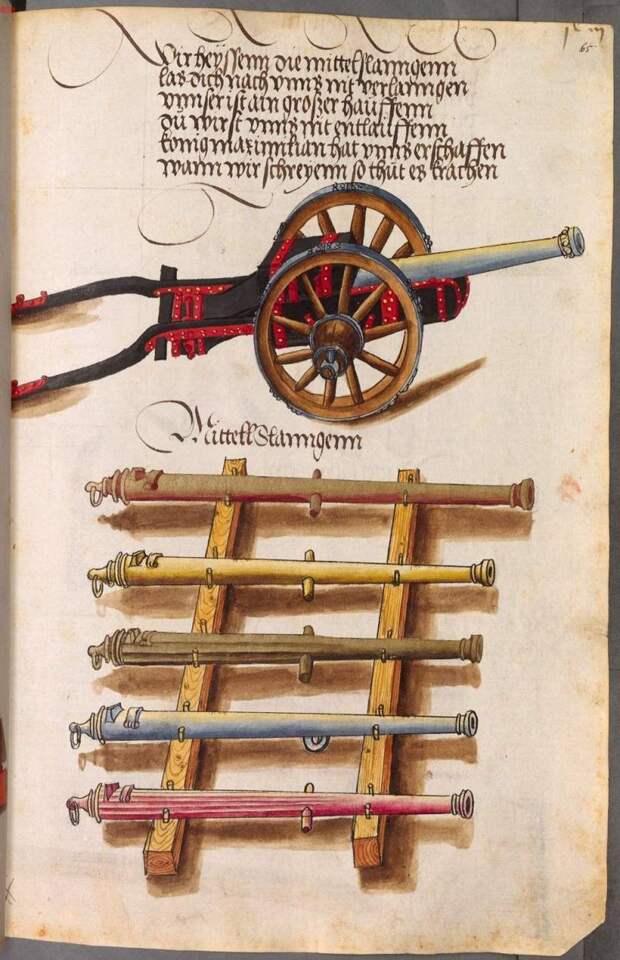 65
Wir heyssenn die mittelslanngenn
las dich nach vnns nit verlanngen
vnnser ist ain großer hauffenn
dü wirst vnns nit entlauffenn
konig maximilian hat vnns erschaffen
wann wir schreyenn so thüt es krachen
Mittell Slanngenn